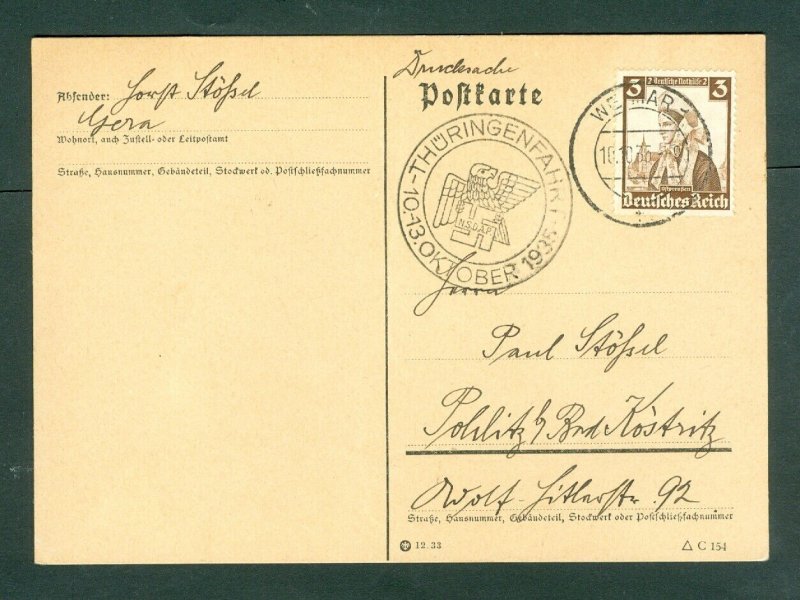 Absender: Horst Stößel
Gera
Wohnort, auch Zustell- oder Leitpostamt
Straße, Hausnummer, Gebäudeteil, Stockwerk od. Postschließfachnummer
Drucksache
Postkarte
THÜRINGENFAHRT
-10.-13.OKTOBER 1935-
N.S.D.A.P.
WEIMAR 1
10.10.35
3 2 Deutsche Nothilfe 2 3
Ostpreußen
Deutsches Reich
Herrn
Paul Stößel
Pohlitz b/ Bad Köstritz
Adolf-Hitlerstr. 92
Straße, Hausnummer, Gebäudeteil, Stockwerk oder Postschließfachnummer
12.33
C 154